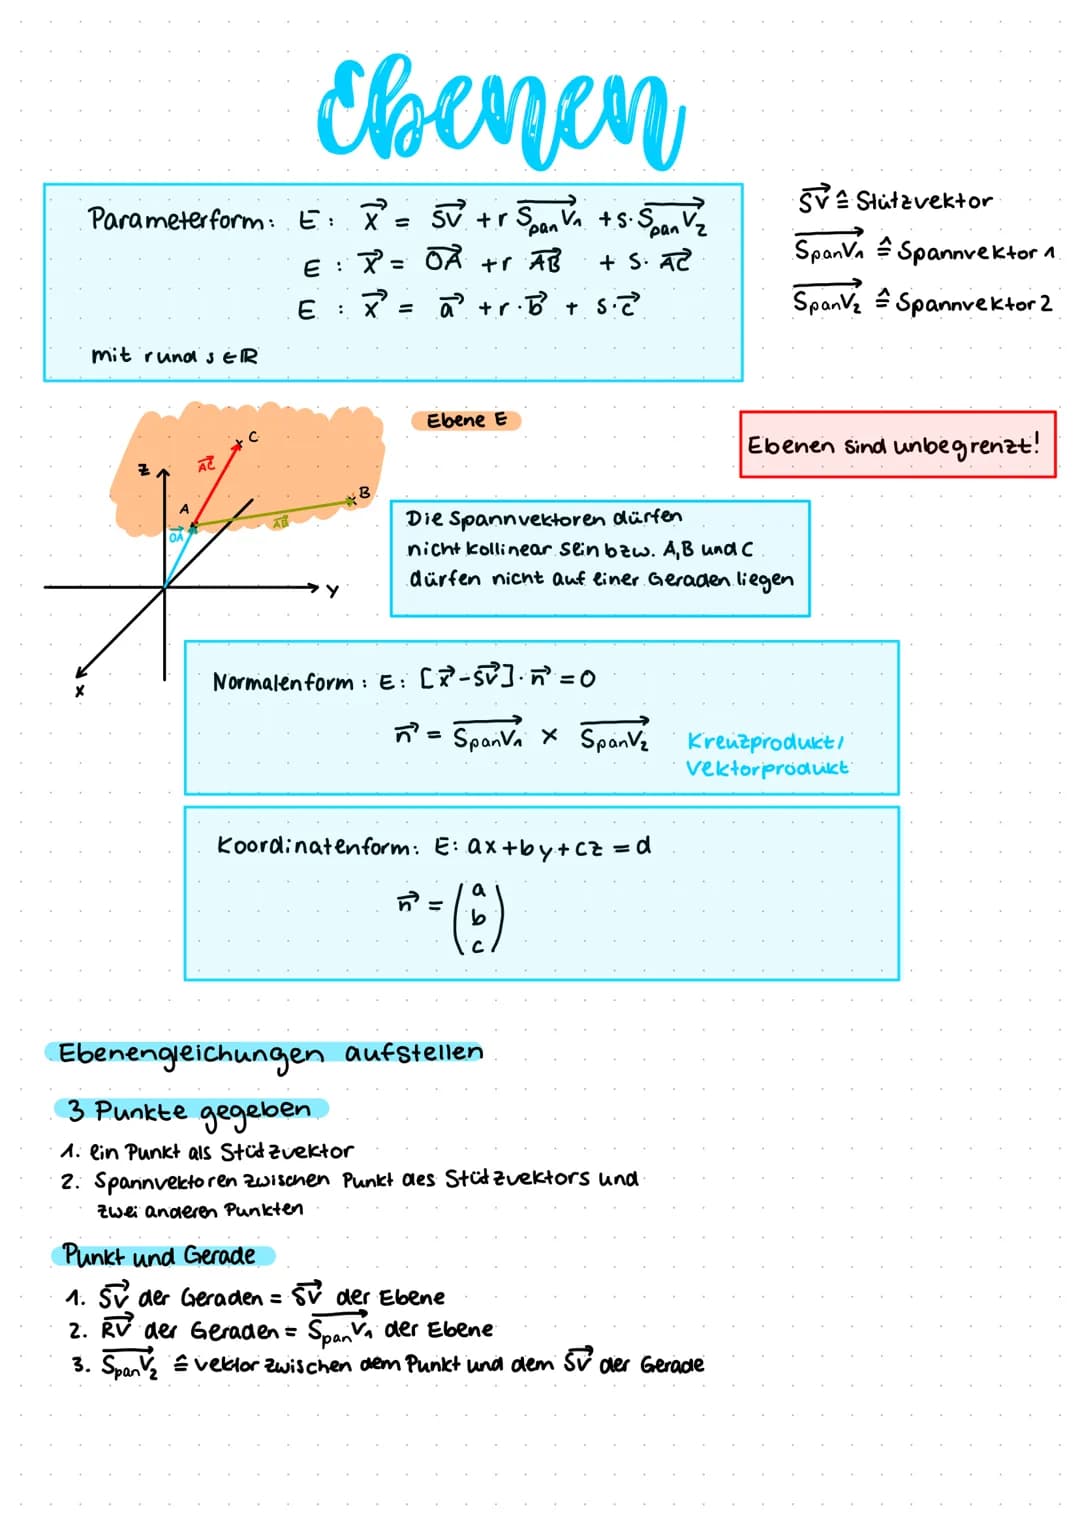 Ebenen
Parameterform: E: x⃗ = SV⃗ + r SpanV₁⃗ + s · SpanV₂⃗
E : x⃗ = OA⃗ + r AB⃗ + s · AC⃗
E : x⃗ = a⃗ + r · b⃗ + s · c⃗
mit r und s ∈ ℝ
SV⃗ ≙ Stützvektor
SpanV₁⃗ ≙ Spannvektor 1
SpanV₂⃗ ≙ Spannvektor 2
Ebene E
Ebenen sind unbegrenzt!
z
AC⃗
C
A
OA⃗
AB⃗
B
y
x
Die Spannvektoren dürfen
nicht kollinear sein bzw. A,B und C
dürfen nicht auf einer Geraden liegen
Normalenform : E: [x⃗ - SV⃗] · n⃗ = 0
n⃗ = SpanV₁⃗ × SpanV₂⃗
Kreuzprodukt/
Vektorprodukt
Koordinatenform: E: ax + by + cz = d
n⃗ = (a
b
c)
Ebenengleichungen aufstellen
3 Punkte gegeben
1. ein Punkt als Stützvektor
2. Spannvektoren zwischen Punkt des Stützvektors und
zwei anderen Punkten
Punkt und Gerade
1. SV⃗ der Geraden = SV⃗ der Ebene
2. RV⃗ der Geraden = SpanV₁⃗ der Ebene
3. SpanV₂⃗ ≙ vektor zwischen dem Punkt und dem SV⃗ der Gerade